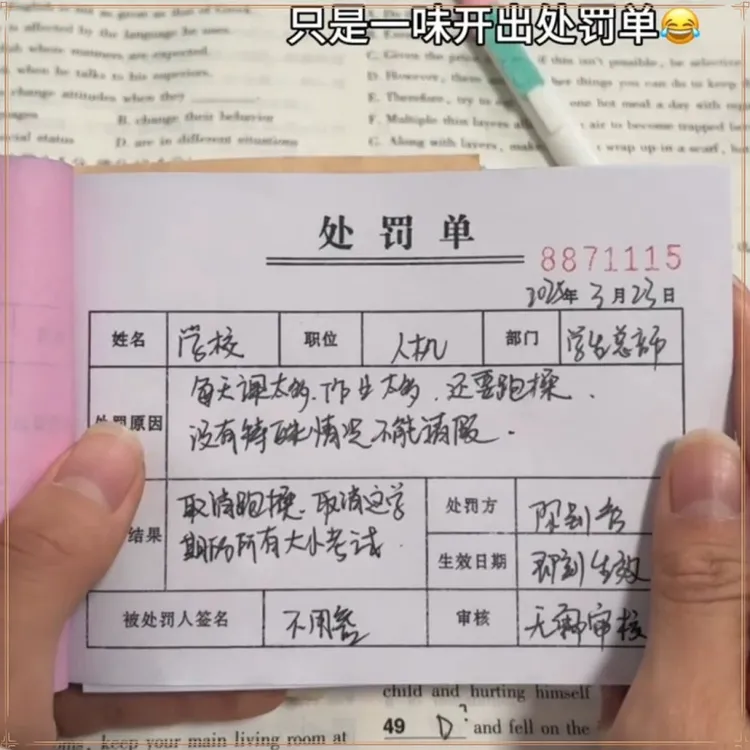 只是一味开出处罚单😂
is affected by the language he uses.
when he talks to his superiors.
change attitudes when they
B. change their behavior
social status D. are in different situations
D. However, there
E. Therefore, try to one hot meal a day with
F. Multiple thin layers air to become trapped
G. Along with layers, wrap up in a scarf,
处罚单
8871115
2025年3月23日
姓名 学校 职位 人机 部门 学生总部
处罚原因 每天课太多、作业太多、还要跑操、
没有特殊情况不能请假.
结果 取消跑操、取消这学
期的所有大小考试.
处罚方
生效日期 即刻生效
被处罚人签名 不用签 审核 无需审核
child and hurting himself
49 D? and fell on the
keep your main living room at